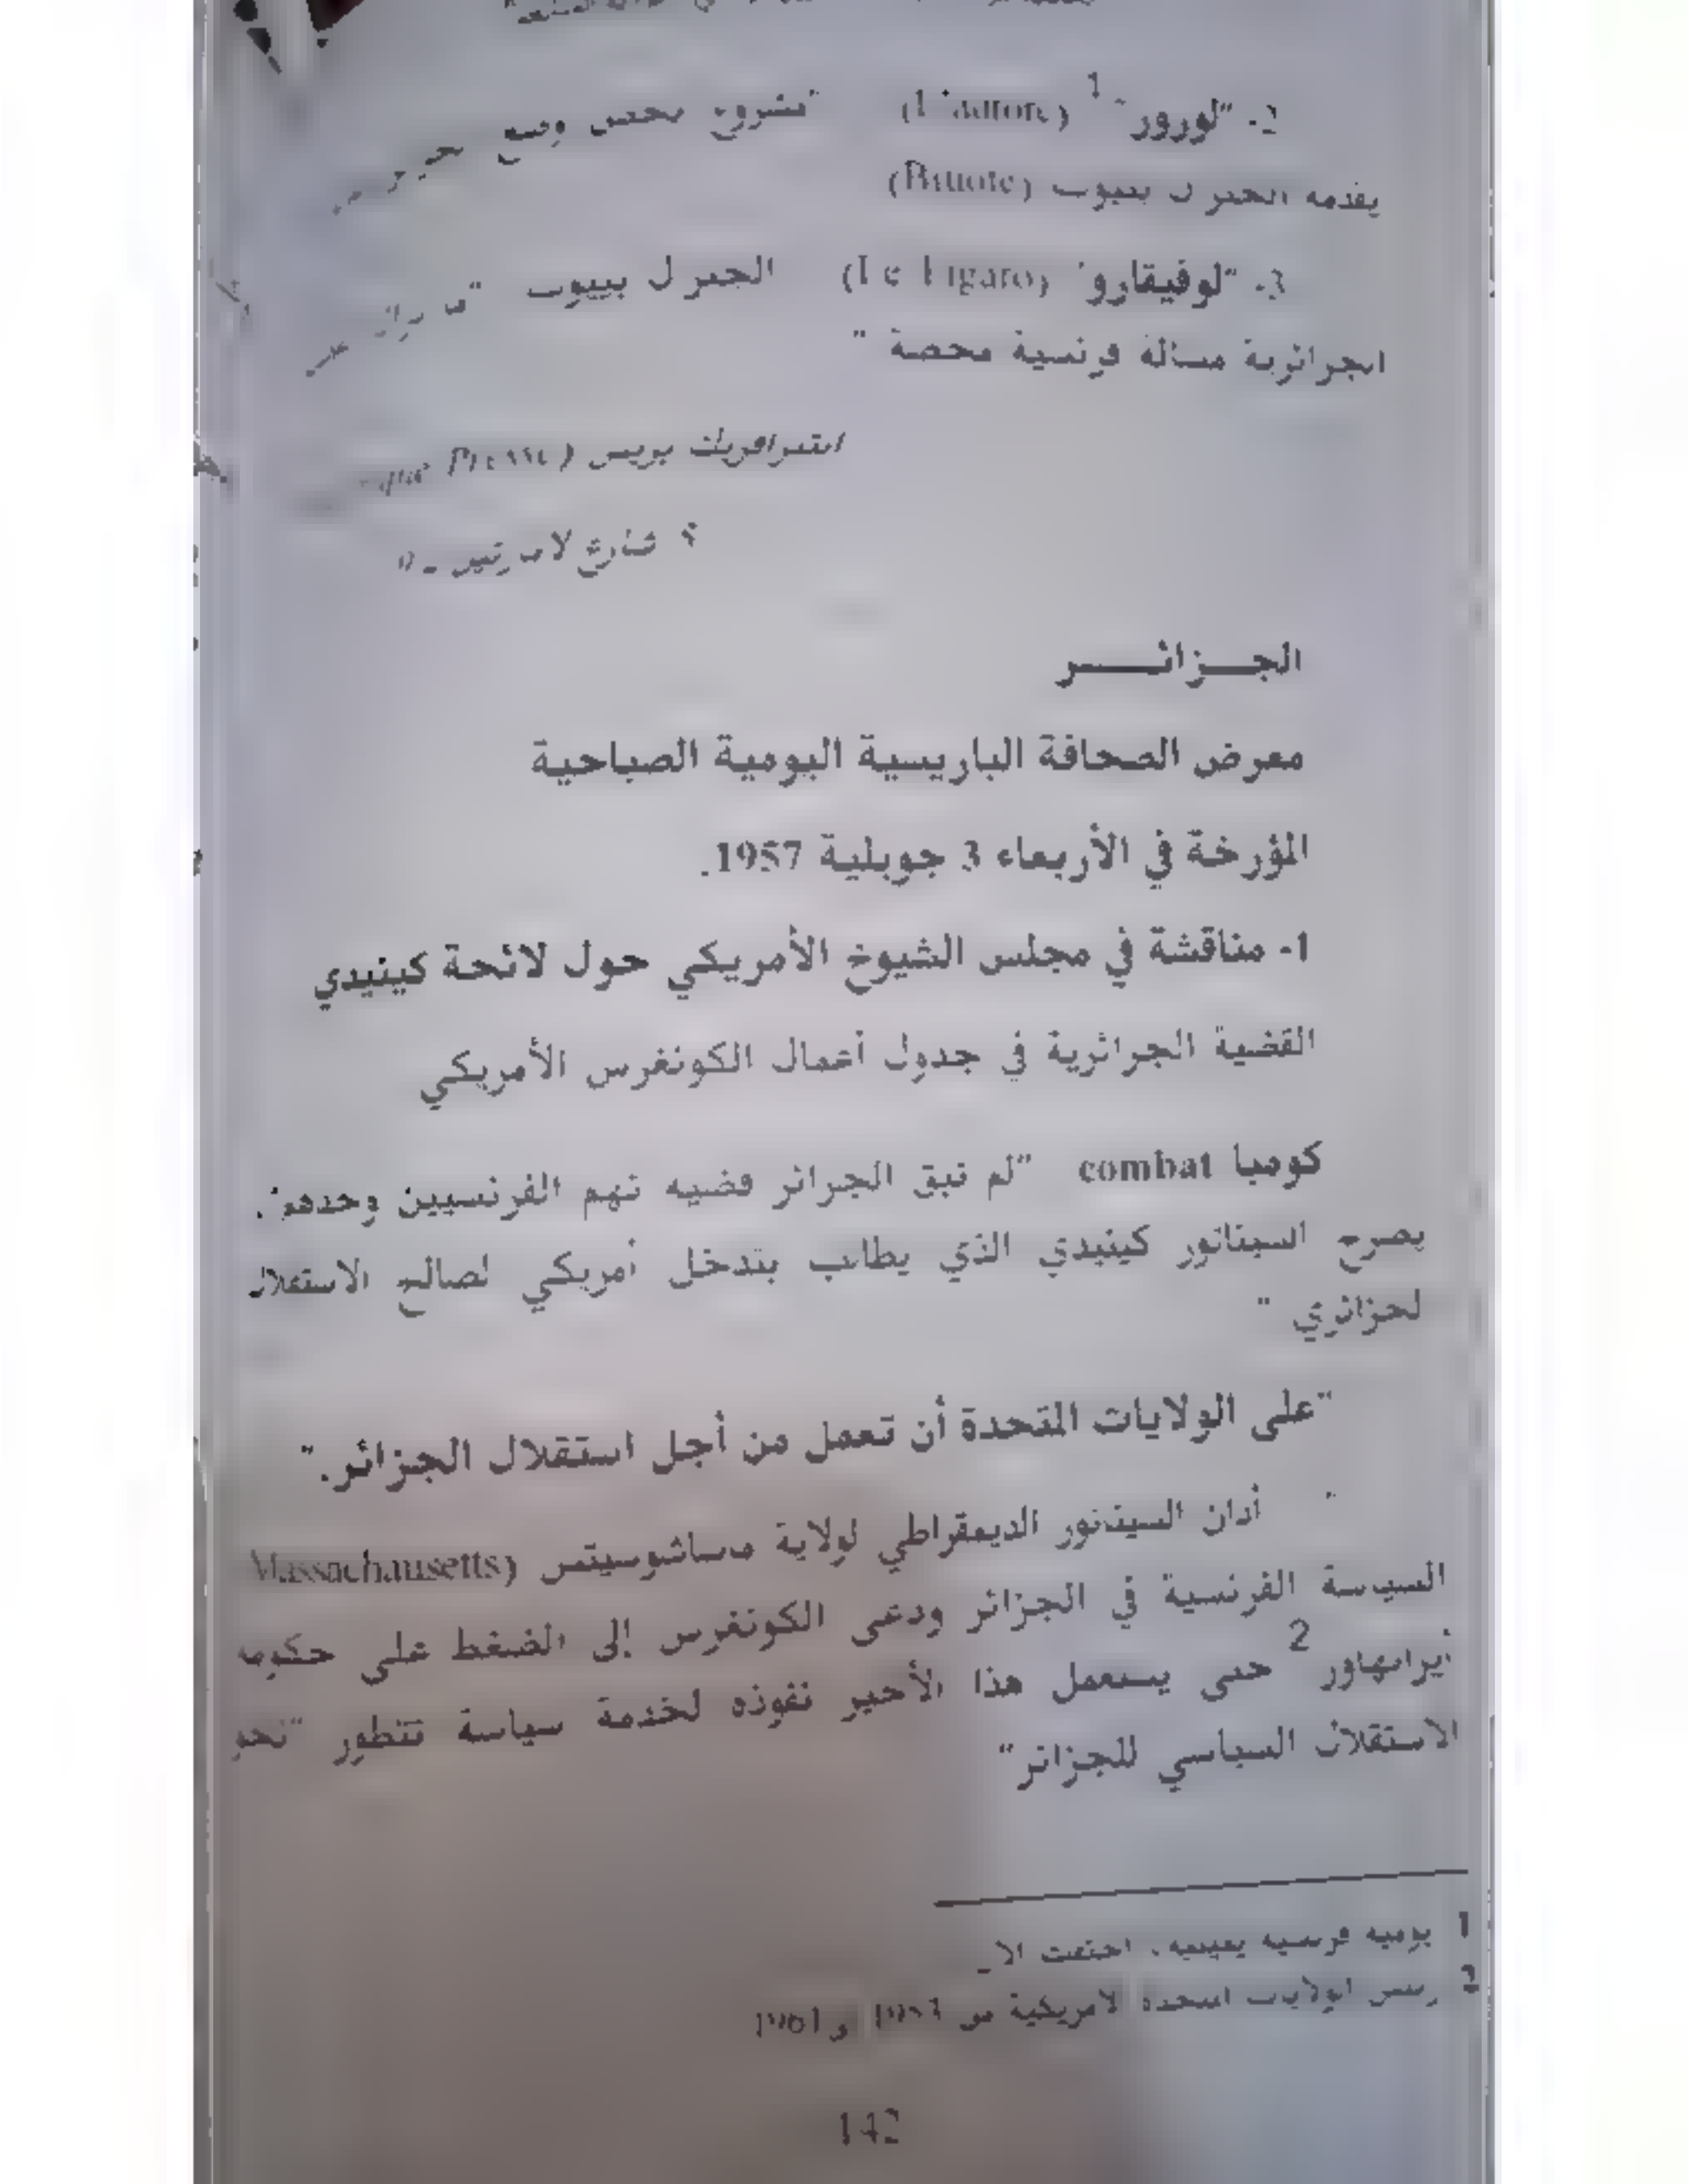 2- "لورور" 1 (L'aurore) "مشروع
يقدمه الجنرال بييوت (Billotte)
3- "لوفيقارو" (Le Figaro) الجنرال بييوت
الجزائرية مسألة فرنسية محضة"
بريس Presse)
شارع لامارتين
الجـــزائـــــر
معرض الصحافة الباريسية اليومية الصباحية
المؤرخة في الأربعاء 3 جويلية 1957.
1- مناقشة في مجلس الشيوخ الأمريكي حول لائحة كينيدي
القضية الجزائرية في جدول أعمال الكونغرس الأمريكي
كومبا combat "لم تبق الجزائر قضية تهم الفرنسيين وحدهم".
يصرح السيناتور كينيدي الذي يطالب بتدخل أمريكي لصالح الاستقلال
لجزائري"
"على الولايات المتحدة أن تعمل من أجل استقلال الجزائر."
" أدان السيناتور الديمقراطي لولاية ماساشوسيتس (Massachausetts
السياسة الفرنسية في الجزائر ودعى الكونغرس إلى الضغط على حكومة
أيزانهاور 2 حتى يستعمل هذا الأخير نفوذه لخدمة سياسة تتطور "نحو
الاستقلال السياسي للجزائر"
1 يومية فرنسية يمينية، اختفت
2 رئيس الولايات المتحدة الأمريكية من 1953 و 1961
142